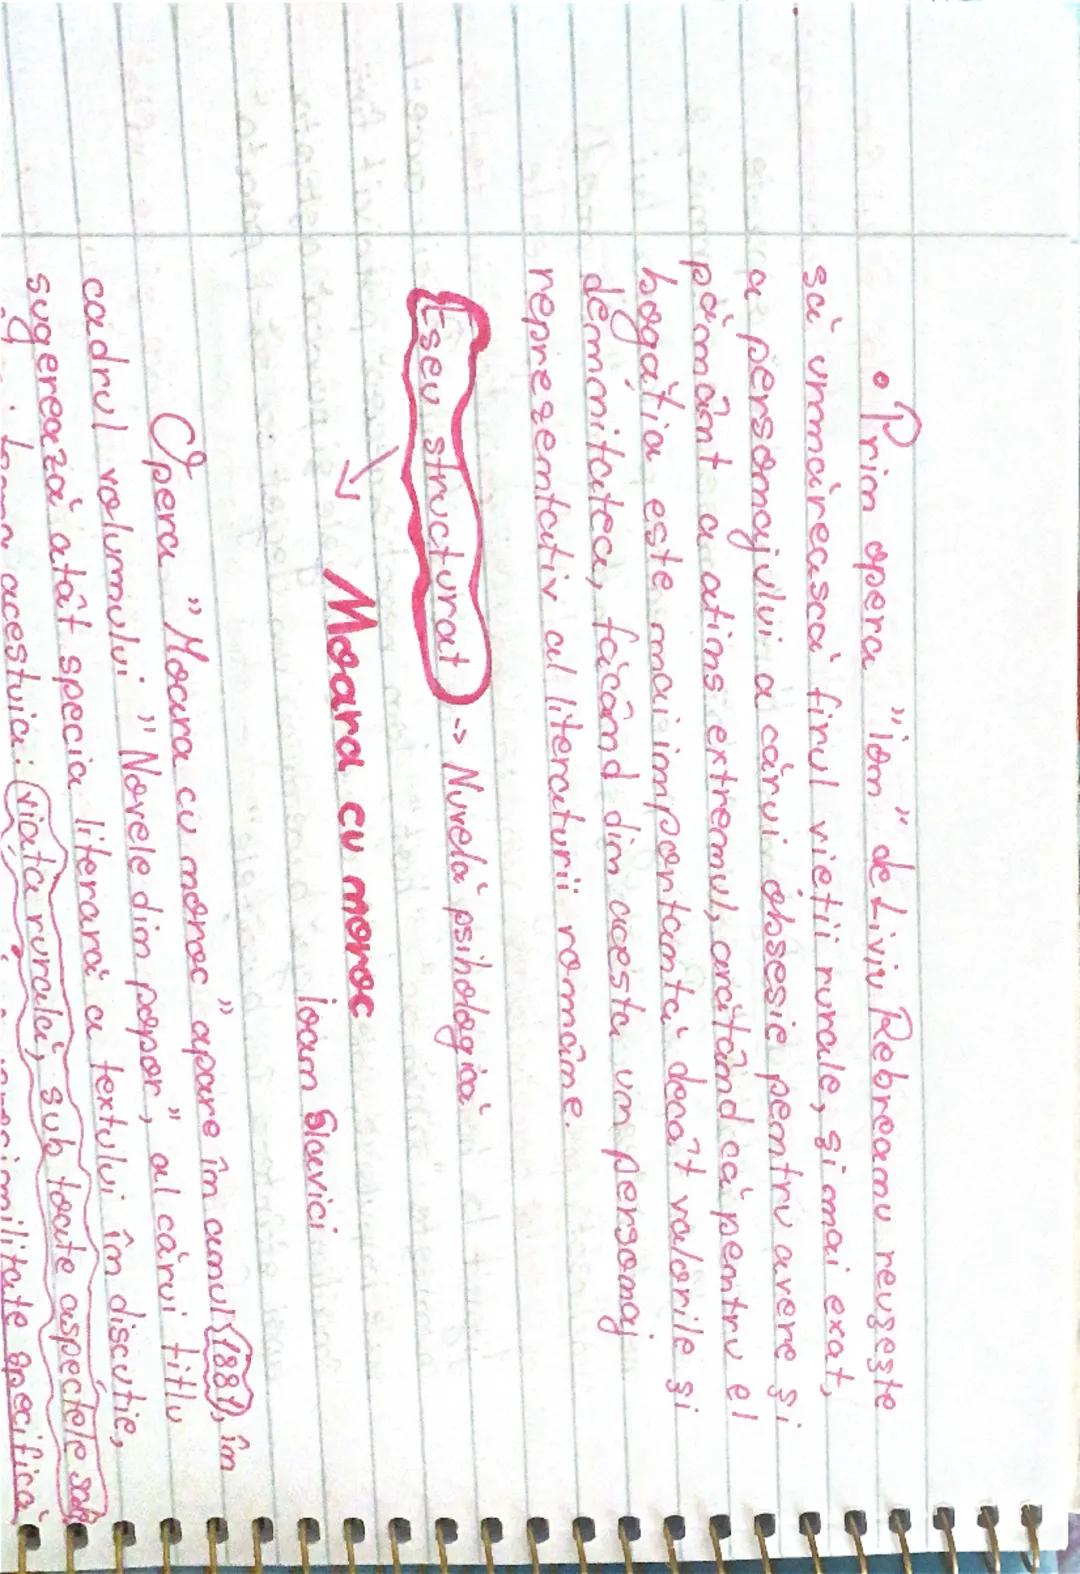 • Prin opera "ion" de Liviu Rebreanu reușește
să urmărească firul vieții rurale, și mai exat,
a personajului a cărui obsesie pentru avere și
pământ a atins extremul, arătând că pentru el
bogăția este mai importantă decât valorile și
demnitatea, făcând din acesta un personaj
reprezentativ al literaturii române.
Eseu structurat -> Nuvelă psihologică
Moara cu noroc
ioan Slavici
Opera "Moara cu noroc" apare în anul 1881, în
cadrul volumului "Novele din popor," al cărui titlu
sugerează atât specia literară a textului în discuție,
acestuia: viața rurală, sub toate aspectele sale
specifică